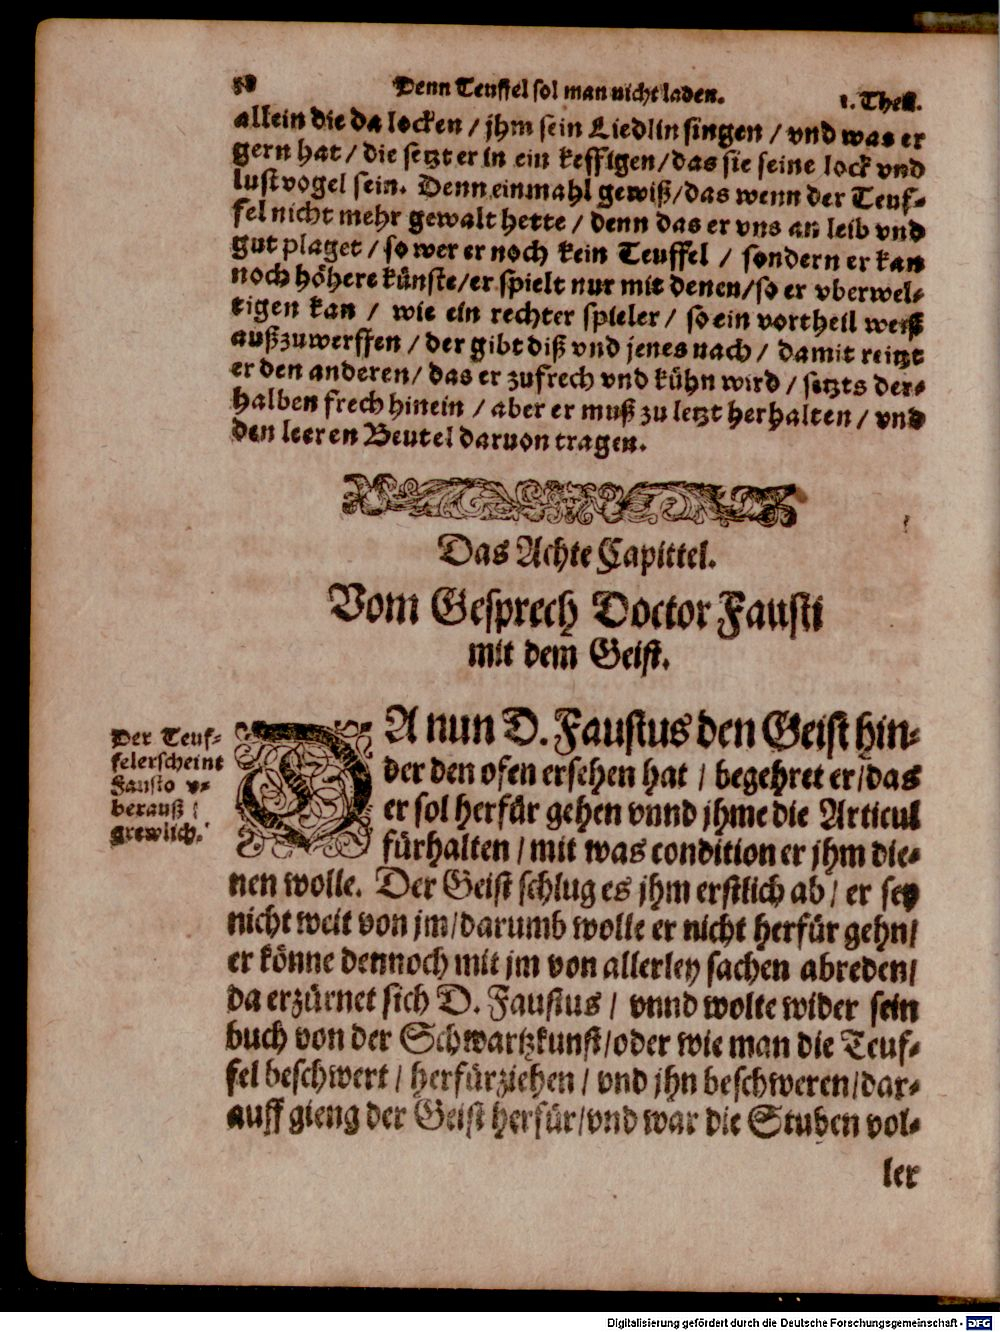 58 Denn Teuffel sol man nicht laden. 1. Theil.
allein die da locken / jhm sein Liedlin singen / vnd was er
gern hat / die setzt er in ein keffigen / das sie seine lock vnd
lustvogel sein. Denn einmahl gewiß / das wenn der Teuf-
fel nicht mehr gewalt hette / denn das er vns an leib vnd
gut plaget / so wer er noch kein Teuffel / sondern er kan
noch höhere künste / er spielt nur mit denen / so er vberwel-
tigen kan / wie ein rechter spieler / so ein vortheil weiß
außzuwerffen / der gibt diß vnd jenes nach / damit reitzt
er den anderen / das er zu frech vnd kühn wird / setzts der-
halben frech hinein / aber er muß zu letzt herhalten / vnd
den leeren Beutel daruon tragen.
Das Achte Capittel.
Vom Gesprech Doctor Fausti
mit dem Geist.
Der Teuf-
fel erscheint
Fausto v-
berauß
grewlich.
DA nun D. Faustus den Geist hin-
der den ofen ersehen hat / begehret er / das
er sol herfür gehen vnnd jhme die Articul
fürhalten / mit was condition er jhm die-
nen wolle. Der Geist schlug es jhm erstlich ab / er sey
nicht weit von jm / darumb wolle er nicht herfür gehn /
er könne dennoch mit jm von allerley sachen abreden /
da erzürnet sich D. Faustus / vnnd wolte wider sein
buch von der Schwartzkunst / oder wie man die Teuf-
fel beschwert / herfürziehen / vnd jhn beschweren / dar-
auff gieng der Geist herfür / vnd war die Stuben vol-
ler
Digitalisierung gefördert durch die Deutsche Forschungsgemeinschaft - DFG